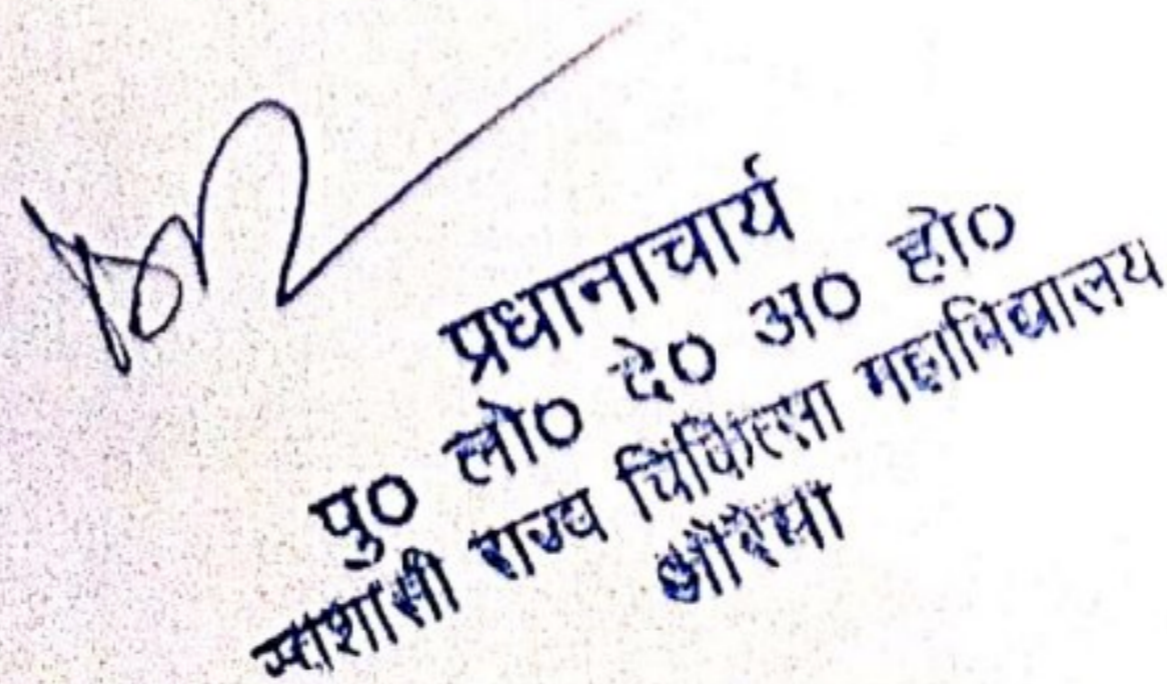 प्रधानाचार्य
पु० लो० दे० अ० हो०
स्वाशासी राज्य चिकित्सा महाविद्यालय
औरैया